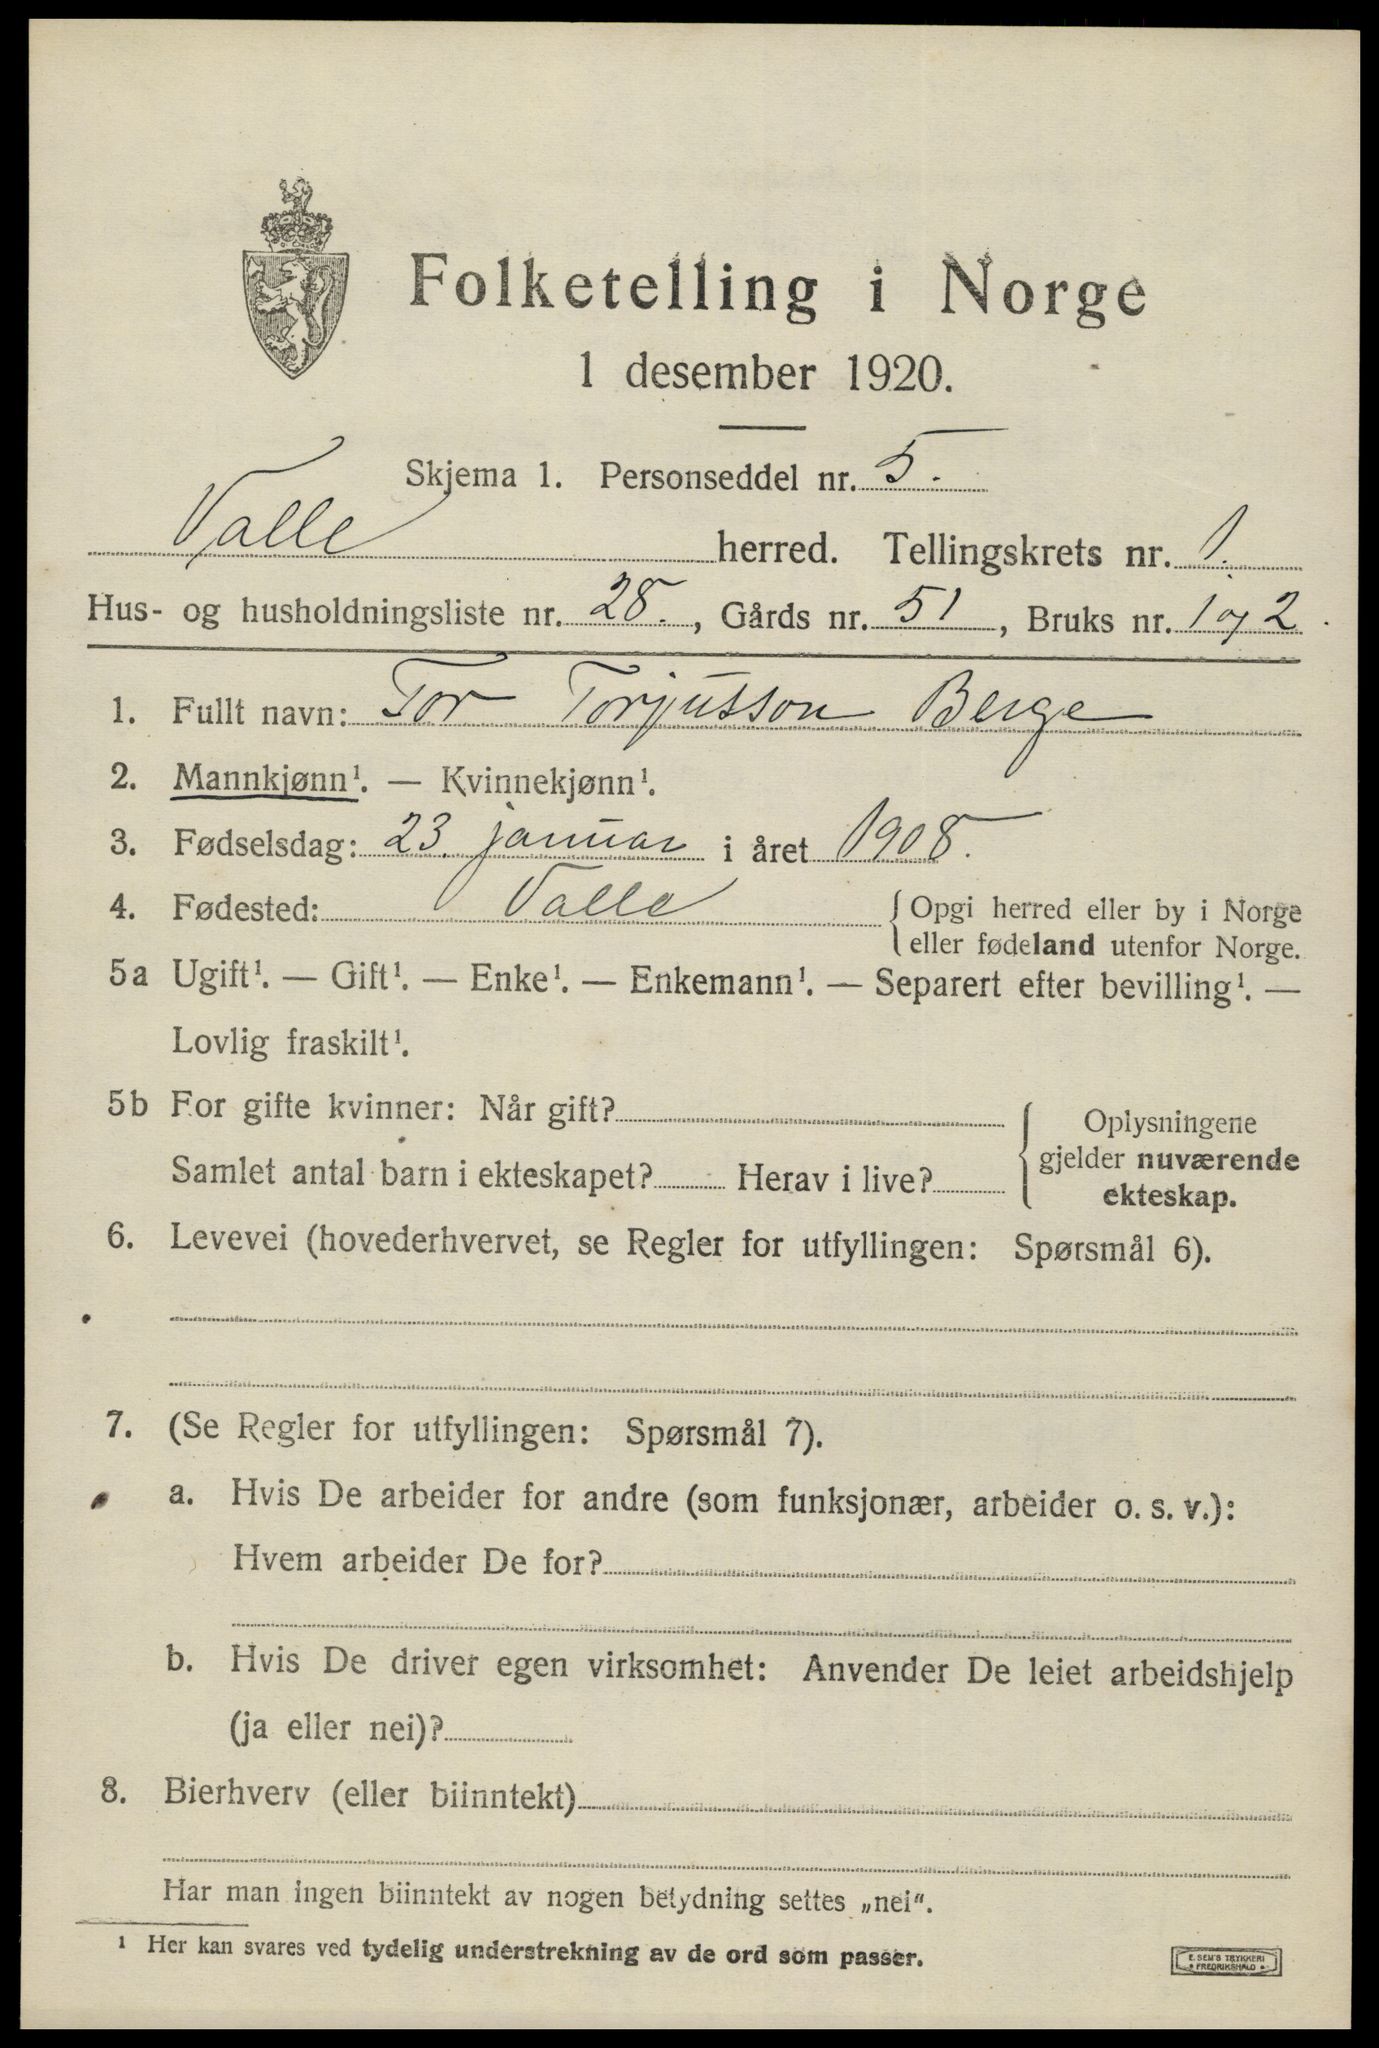 Folketelling i Norge
1 desember 1920.
Skjema 1. Personseddel nr. 5.
Valle herred. Tellingskrets nr. 1.
Hus- og husholdningsliste nr. 28., Gårds nr. 51, Bruks nr. 1 og 2.
1. Fullt navn: Tor Torjusson Berge
2. Mannkjønn¹. — Kvinnekjønn¹.
3. Fødselsdag: 23. januar i året 1908.
4. Fødested: Valle { Opgi herred eller by i Norge
eller fødeland utenfor Norge.
5a Ugift¹. — Gift¹. — Enke¹. — Enkemann¹. — Separert efter bevilling¹. —
Lovlig fraskilt¹.
5b For gifte kvinner: Når gift? { Oplysningene
Samlet antal barn i ekteskapet? Herav i live? gjelder nuværende
ekteskap.
6. Levevei (hovederhvervet, se Regler for utfyllingen: Spørsmål 6).
7. (Se Regler for utfyllingen: Spørsmål 7).
a. Hvis De arbeider for andre (som funksjonær, arbeider o. s. v.):
Hvem arbeider De for?
b. Hvis De driver egen virksomhet: Anvender De leiet arbeidshjelp
(ja eller nei)?
8. Bierhverv (eller biinntekt)
Har man ingen biinntekt av nogen betydning settes „nei“.
¹ Her kan svares ved tydelig understrekning av de ord som passer.
E. SEM'S TRYKKERI
• FREDRIKSHALD •